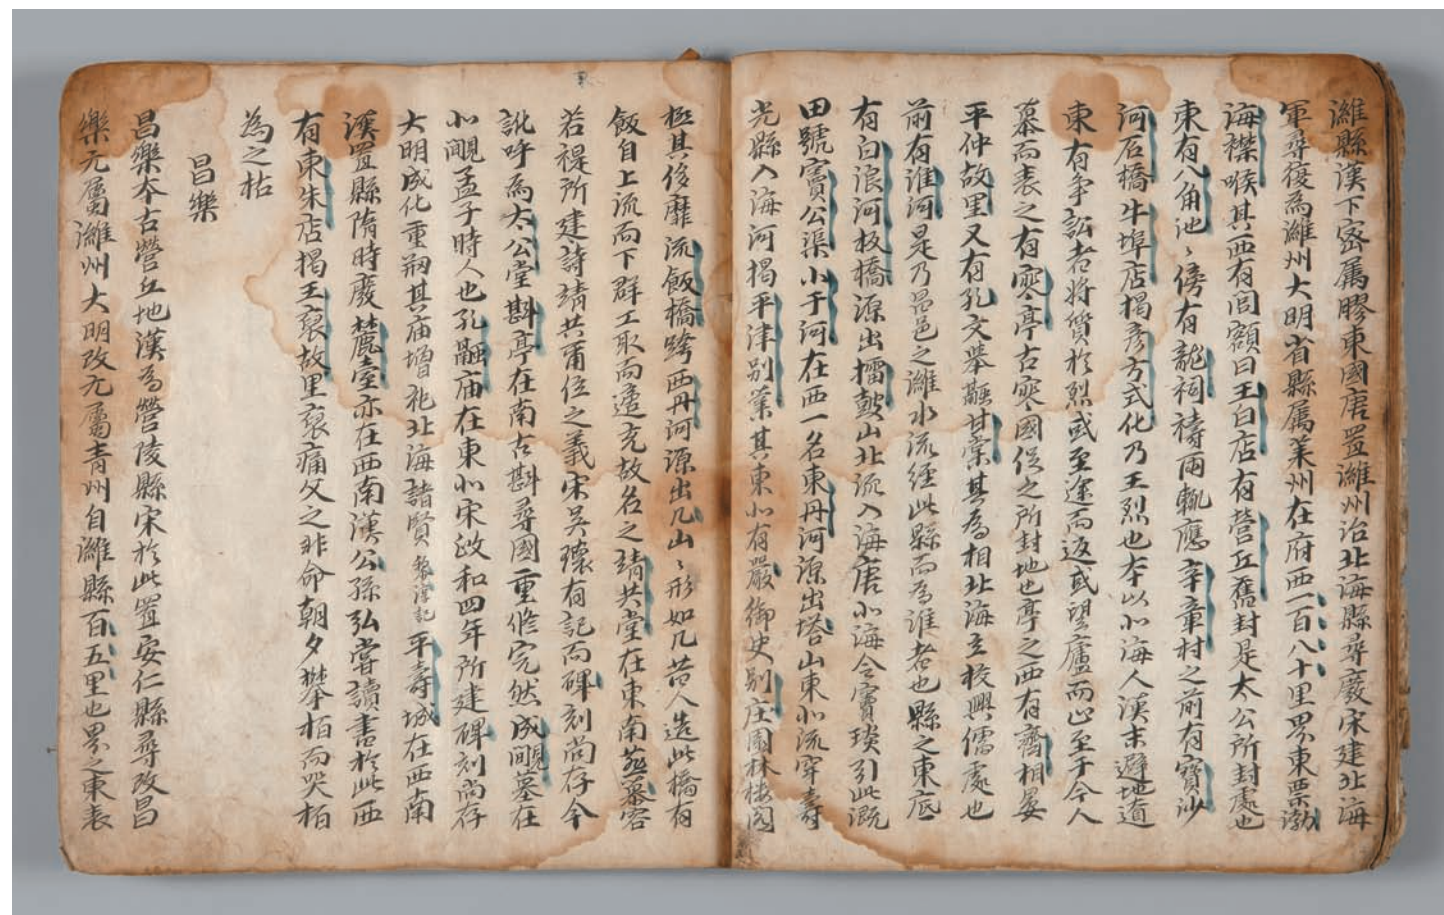 濰縣漢下密屬膠東國唐置濰州治北海縣尋廢宋建北海
軍尋復為濰州大明省縣屬萊州在府西一百八十里界東票渤
海襟喉其西有閭額曰王白店有營丘舊封是太公所封處也
東有八角池〻傍有龍祠禱雨輒應辛章村之前有寶沙
河石橋牛埠店揭彥方式化乃王烈也本以北海人漢末避地遼
東有爭訟者將質於烈或至途而返或望廬而止至于今人
慕而表之有寒亭古寒國促之所封地也亭之西有齊相晏
平仲故里又有孔文舉融甘棠其為相北海立校興儒處也
前有淮河是乃昌邑之濰水流經此縣而為淮者也縣之東底
有白浪河板橋源出擂鼓山北流入海唐北海令竇琰引此溉
田號竇公渠小于河在西一名東丹河源出塔山東北流穿壽
光縣入海河揭平津別業其東北有嚴御史別庄園林樓閣
極其侈靡流飯橋跨西丹河源出几山〻形如几昔人造此橋有
飯自上流而下群工取而遞充故名之靖共堂在東南慕容
若禔所建詩靖共爾位之義宋吳瓌有記而碑刻尚存今
訛呼為太公堂斟亭在南古斟尋國重修完然成覵墓在
北覵孟子時人也孔融庙在東北宋政和四年所建碑刻尚存
大明成化重刱其庙增祀北海諸賢黎淳記平壽城在西南
漢置縣隋時廢麓臺亦在西南漢公孫弘嘗讀書於此西
有東朱店揭王裒故里裒痛父之非命朝夕攀栢而哭栢
為之枯
昌樂
昌樂本古營丘地漢為營陵縣宋於此置安仁縣尋改昌
樂元屬濰州大明改元屬青州自濰縣百五里也界之東表